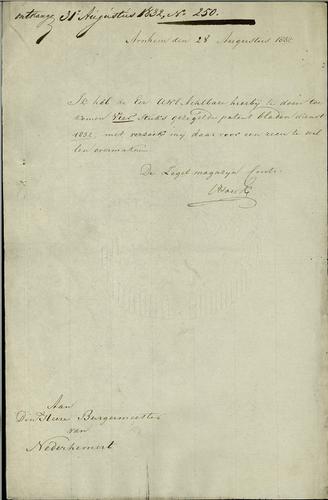 ontvangen 31 Augustus 1832, No 250.
Arnhem den 28 Augustus 1832
Ik heb de Eer UWEdelAchtbare hierbij te doen toe
komen Vier Stuks gezegelde patent bladen dienst
1832, met verzoek mij daar voor een reçu te wil
len overmaken.
De Zegel magazyn
Aan
Den Heere Burgermeester
van
Nederhemert